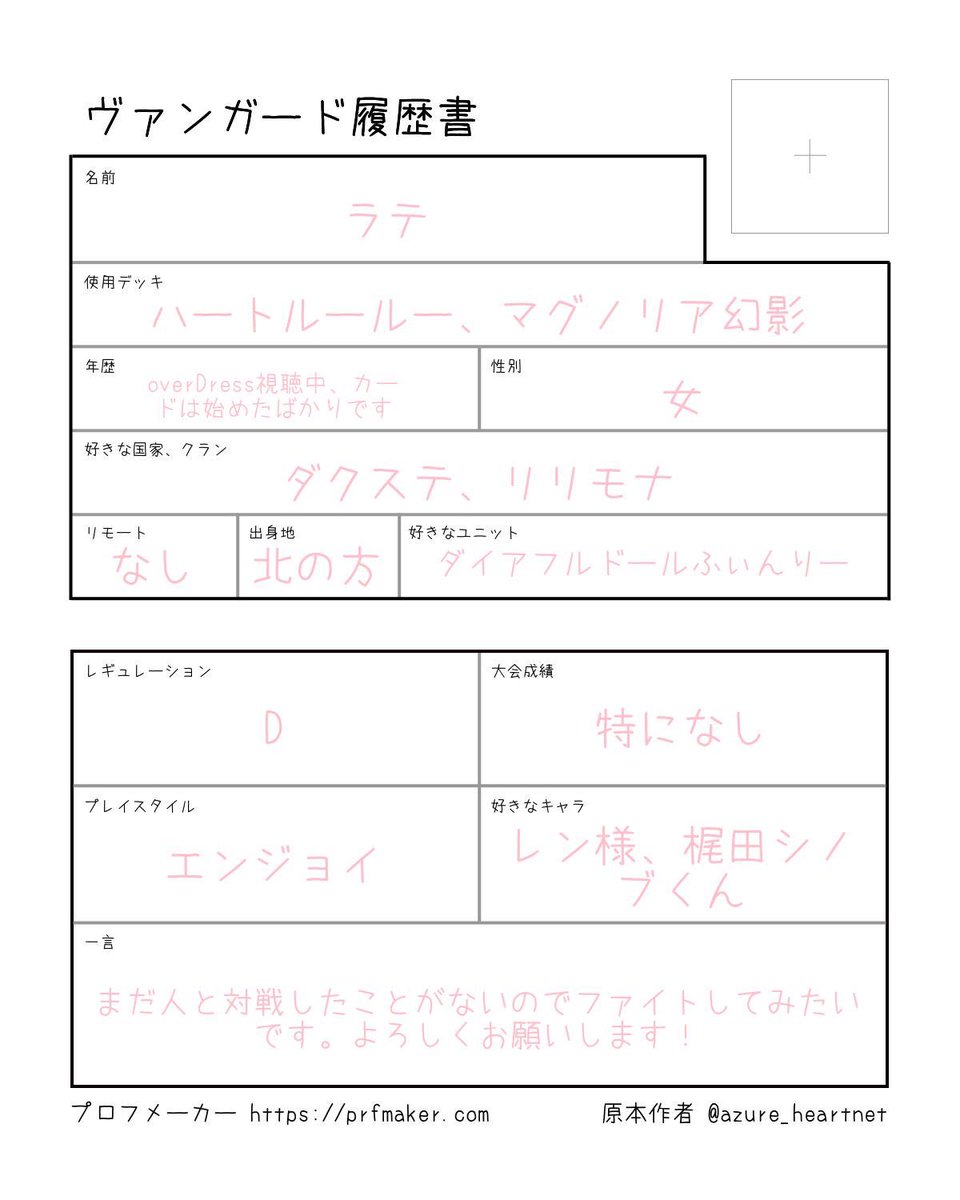 ヴァンガード履歴書
名前
ラテ
使用デッキ
ハートルールー、マグノリア幻影
年歴
overDress視聴中、カー
ドは始めたばかりです
性別
女
好きな国家、クラン
ダクステ、リリモナ
リモート
なし
出身地
北の方
好きなユニット
ダイアフルドールふぃんりー
レギュレーション
D
大会成績
特になし
プレイスタイル
エンジョイ
好きなキャラ
レン様、梶田シノ
ブくん
一言
まだ人と対戦したことがないのでファイトしてみたい
です。よろしくお願いします！
プロフメーカー https://prfmaker.com
原本作者 @azure_heartnet